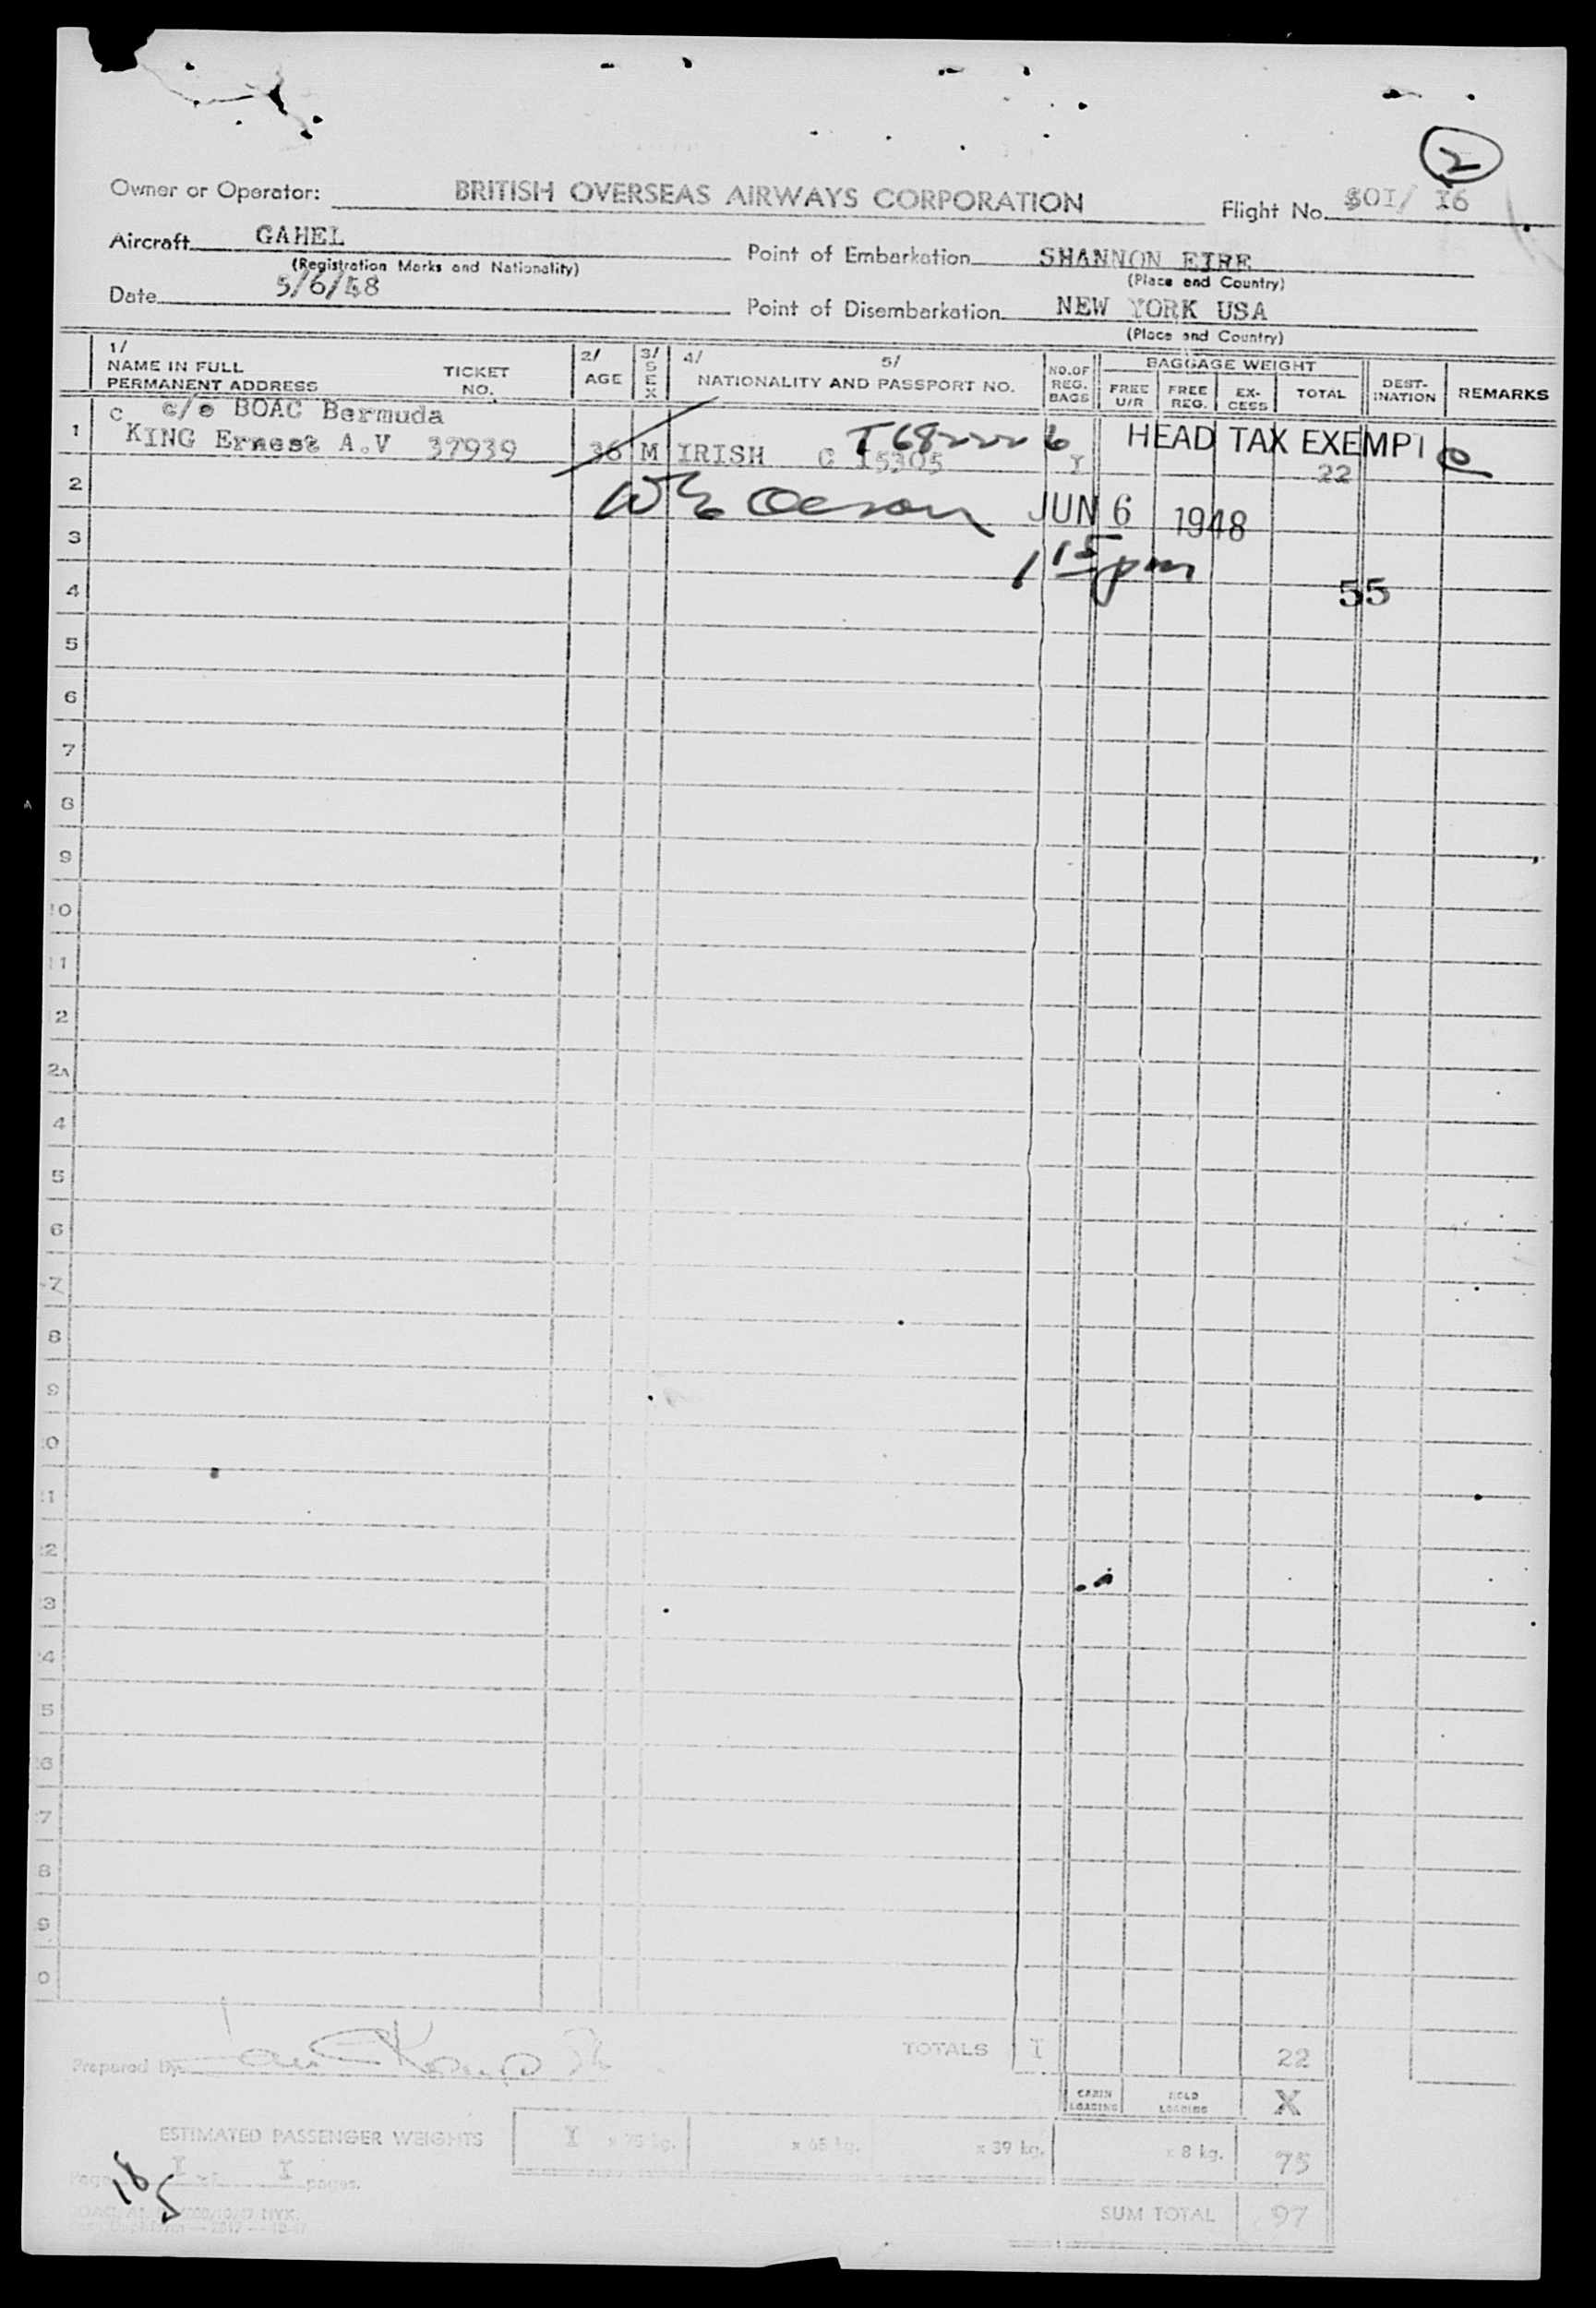 2
Owner or Operator: BRITISH OVERSEAS AIRWAYS CORPORATION Flight No. SOI/ I6
Aircraft GAHEL Point of Embarkation SHANNON EIRE
(Registration Marks and Nationality) (Place and Country)
Date 5/6/48 Point of Disembarkation NEW YORK USA
(Place and Country)
1/ NAME IN FULL PERMANENT ADDRESS TICKET NO. 2/ AGE 3/ SEX 4/ 5/ NATIONALITY AND PASSPORT NO. NO.OF REG. BAGS BAGGAGE WEIGHT FREE U/R FREE REG. EX-CESS TOTAL DEST-INATION REMARKS
C c/o BOAC Bermuda
1 KING Ernest A.V 37939 36 M IRISH C I5305 I HEAD TAX EXEMPT
22
2 JUN 6 1948
3 1 15 pm
4 55
5
6
7
8
9
10
11
2
2A
4
5
6
7
8
9
0
1
2
3
4
5
6
7
8
9
0
Prepared by: TOTALS I 22
CABIN LOADING HOLD LOADING X
ESTIMATED PASSENGER WEIGHTS I x 75 kg. x 65 kg. x 39 kg. x 8 kg. 75
Page I of I pages.
18
5
SUM TOTAL 97